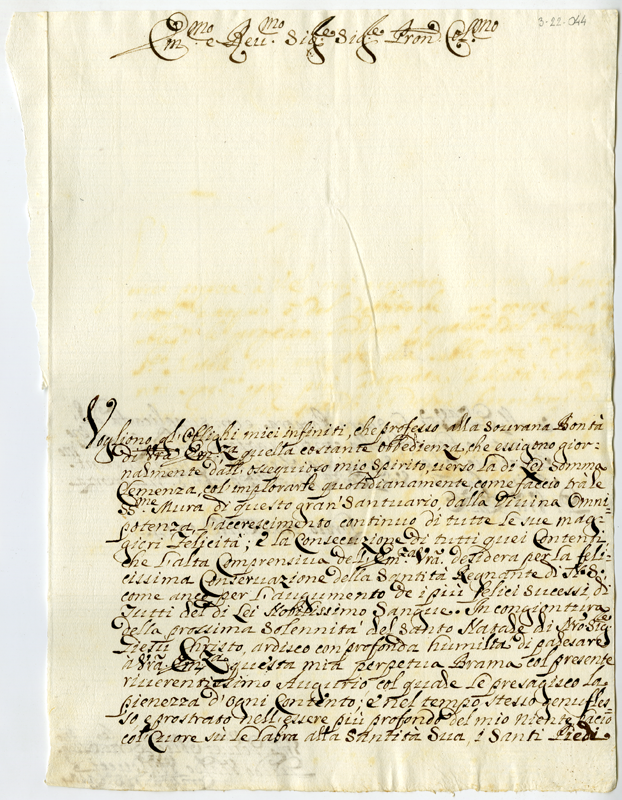 3-22-044
Em.mo e Rev.mo Sig.re Sig.re Pron. Col.mo
Vogliono gl'Oblighi miei infiniti, che professo alla Sovrana Bontà
di Vra. Em.za quella costante obbedienza, che essigono gior-
nalmente dall'ossequioso mio Spirito, verso la di Lei Somma
Clemenza, col'implorarle quotidianamente, come faccio tra le
SS.me Mura di questo gran Santuario, dalla Divina Omni-
potenza, l'accrescimento continuo di tutte le sue mag-
giori Felicità; è la Consecuzione di tutti quei Contenti,
che l'alta Comprensiva dell'Em.za Vra. desidera per la feli-
cissima Conservazione della Santità Regnante di N. S.
come anco per l'augumento de i più felici Sucessi di
Tutti del di Lei Nobilissimo Sangue. In congiontura
della prossima Solennità del Santo Natale di Nro Sig.re
Giesù Christo, ardisco con profonda humiltà di palesare
à Vra. Em.za questa mia perpetua Brama col presente
riverentissimo Augurio col quale le presagisco la
pienezza d'ogni Contento; è nel tempo stesso genufles-
so e prostrato nell'essere più profondo del mio Niente bacio
col Cuore sù le labra alla Santità Sua, i Santi Piedi